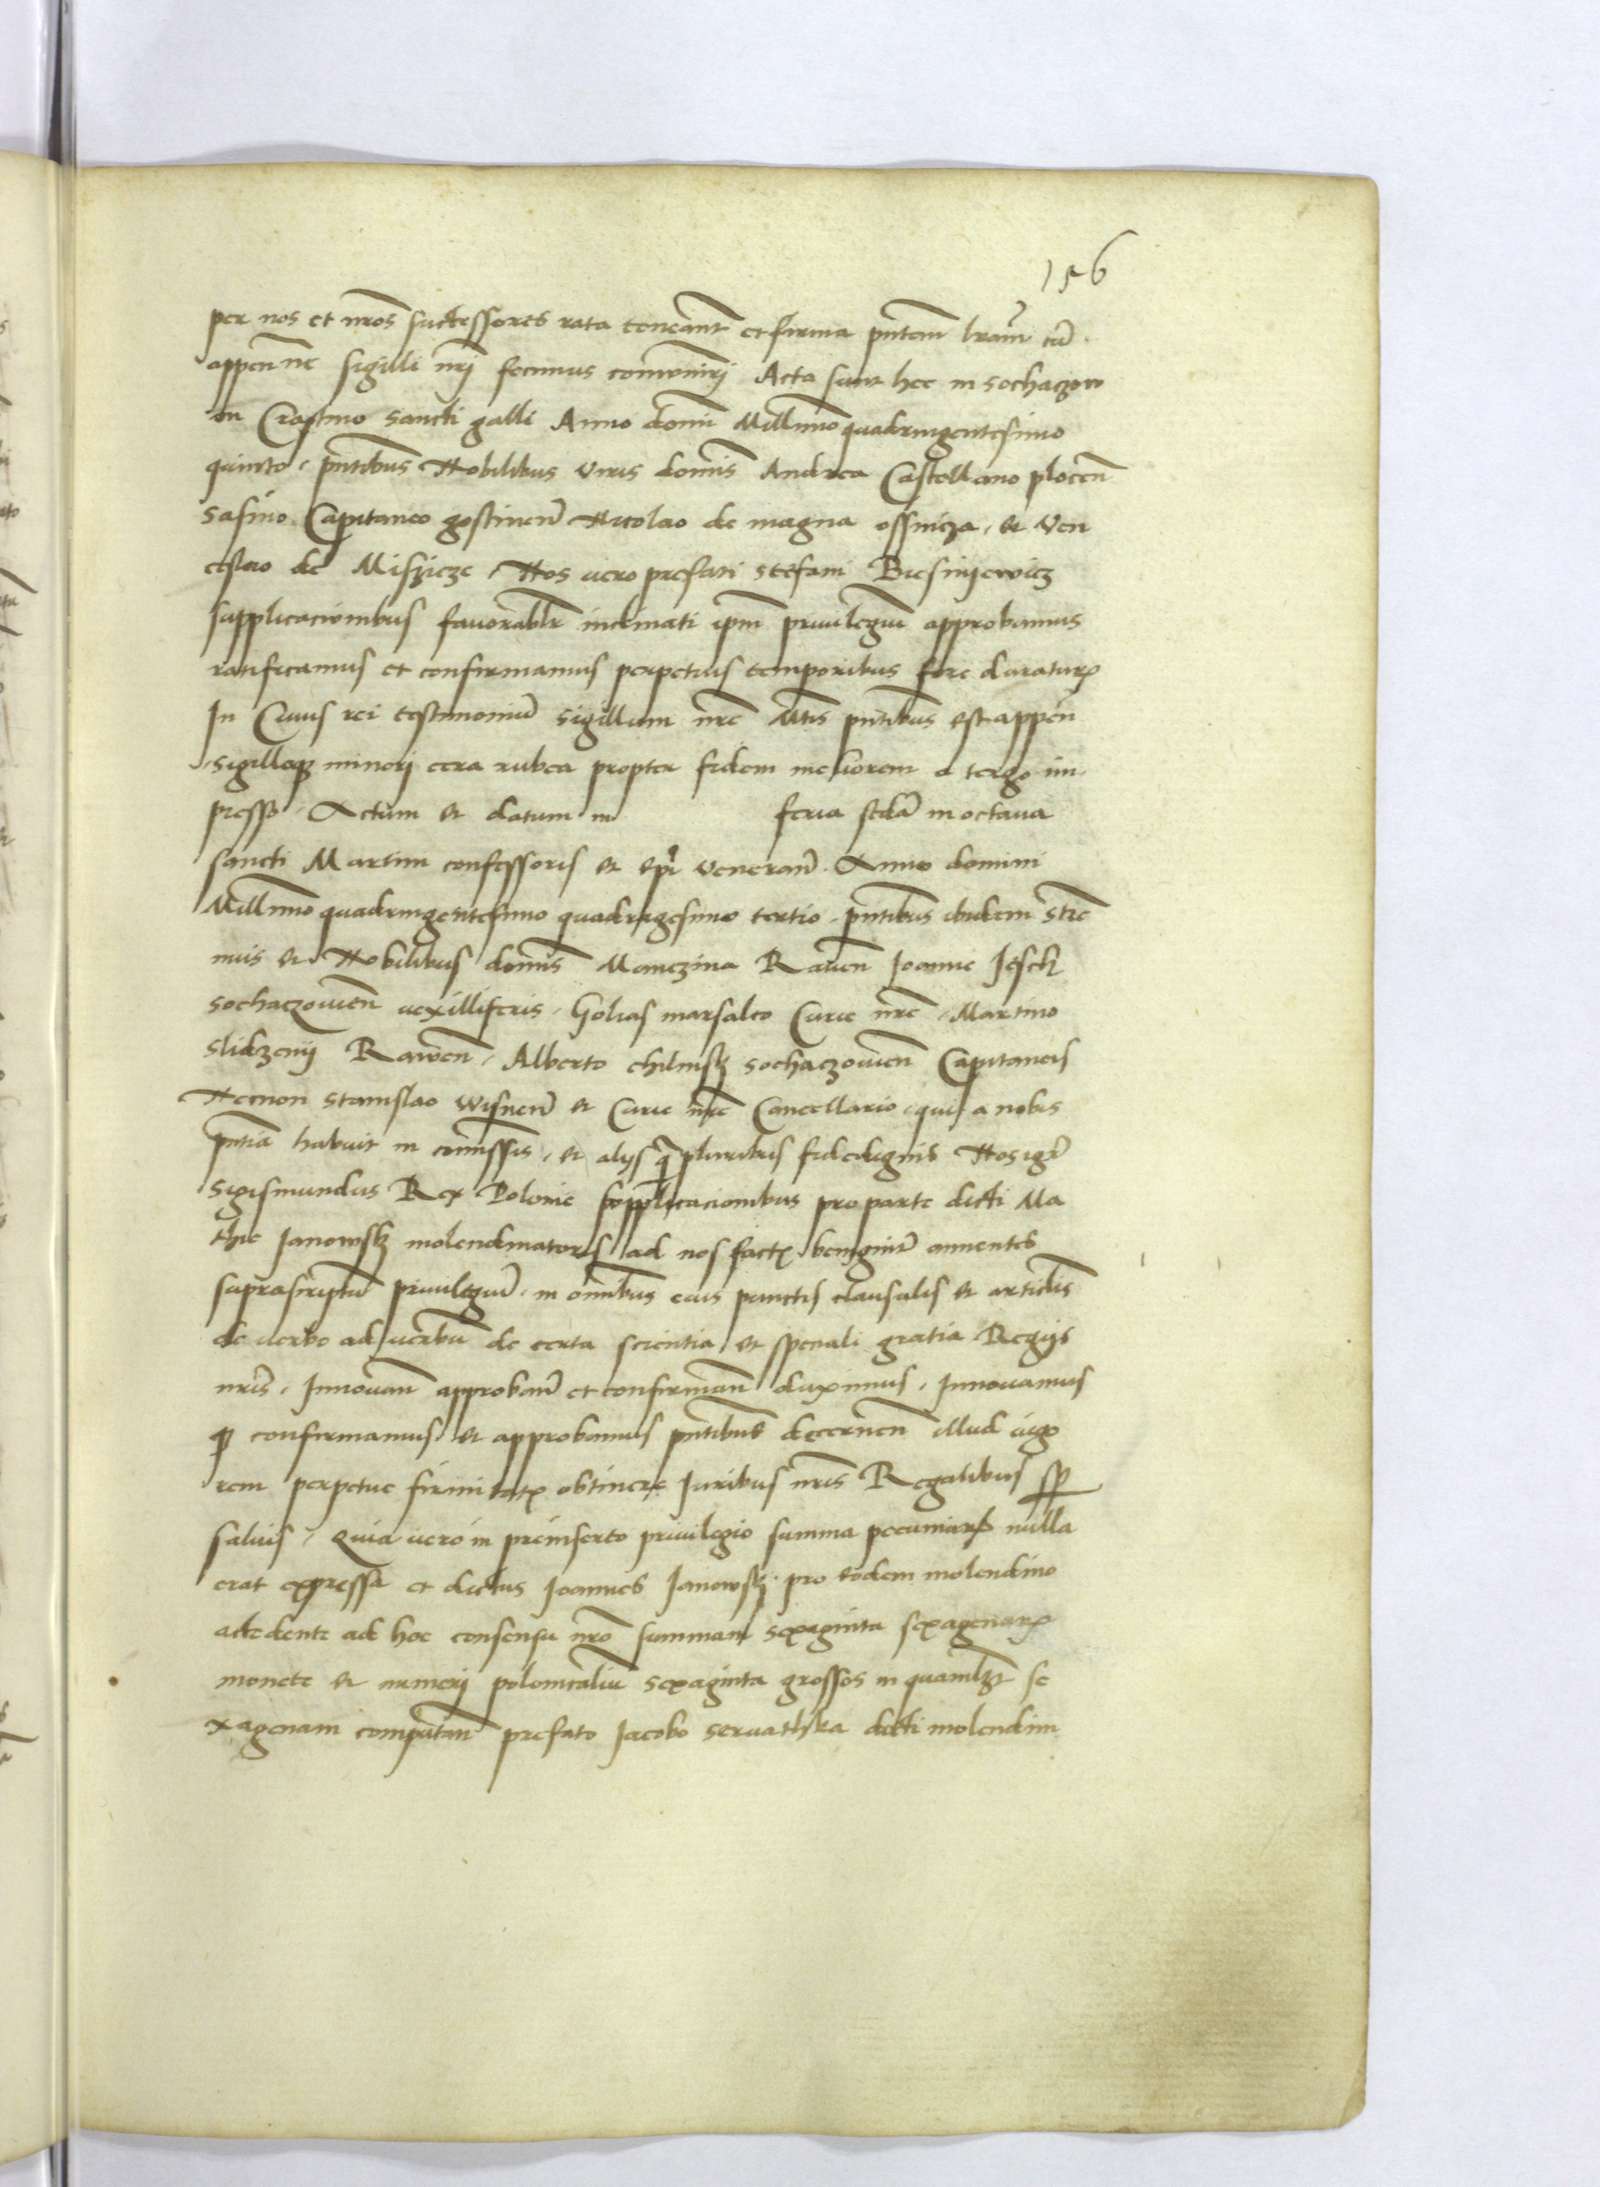 156
per nos et nr̃os successores rata teneant̃ et firma pñtem lr̃am cũ
appen̄ne sigilli nr̃i fecimus com̃uniri Acta sunt hec in sochaczew
in Crastino sancti galli Anno domĩ Millm̃o quadringentesimo
quinto. pñtibus Nobilibus viris domĩs Andrea Castellano plocen̄
Sasino Capitaneo gostinen̄ Nicolao de magna ossnicza. et Ven
ceslao de Miszicze. Nos vero prefati stefani Biesnyewicz
supplicacionibus favorabl̃r inclinati ip̃m privilegiũ approbamus
ratificamus et confirmamus perpetuis temporibus fore duraturꝝ
In Cuius rei testimoniũ sigillum nr̃e Mtis pñtibus est appen̄
sigilloqꝫ minori cera rubea propter fidem meliorem a tergo im
presso. Actum et datum in feria scd̃a in octava
sancti Martini confessoris et ep̃i veneran̄. Anno domini
Millm̃o quadringentesimo quadragesimo tertio. pñtibus ibidem stre
nuis et Nobilibus domĩs Momczina Raven̄ Joanne Jesch
sochaczovien̄ vexilliferis. Golias marsalco Curie nr̃e. Martino
slidzenij Rawen̄. Alberto chilinsky sochaczovien̄ Capitaneis
Necnon stanislao Wisnen̄ et Curie nr̃e Cancellario, qui a nobis
pñtia habuit in com̃issis. et alijs q̃ pluribus fidedignis Nos igr̃
Sigismundus Rex Polonie supplicacionibus pro parte dicti Ma
thie Janowsky molendinatoris ad nos factꝭ benignitr̃ annentes
suprascriptũ privilegiũ. in om̃ibus eius punctis clausulis et articl̃is
de verbo ad verbũ de certa scientia et speciali gratia Regijs
nr̃is. Innovan̄ approban̄ et confirman̄ duximus. Innovamus
qꝫ confirmamus et approbamus pñtibus decernen̄ illud vigo
rem perpetue firmitatꝭ obtinere Juribus nr̃is Regalibus sp̃
salvis. Quia vero in preinserto privilegio summa pecuniarꝝ nulla
erat expressa et dictus Joannes Janowsky. pro eodem molendino
accedente ad hoc consensu nr̃o summam sexaginta sexagenarꝝ
monete et numeri polonicaliũ sexaginta grossos in quamlꝫt se
xagenam computan̄ prefato Jacobo servathka dicti molendini